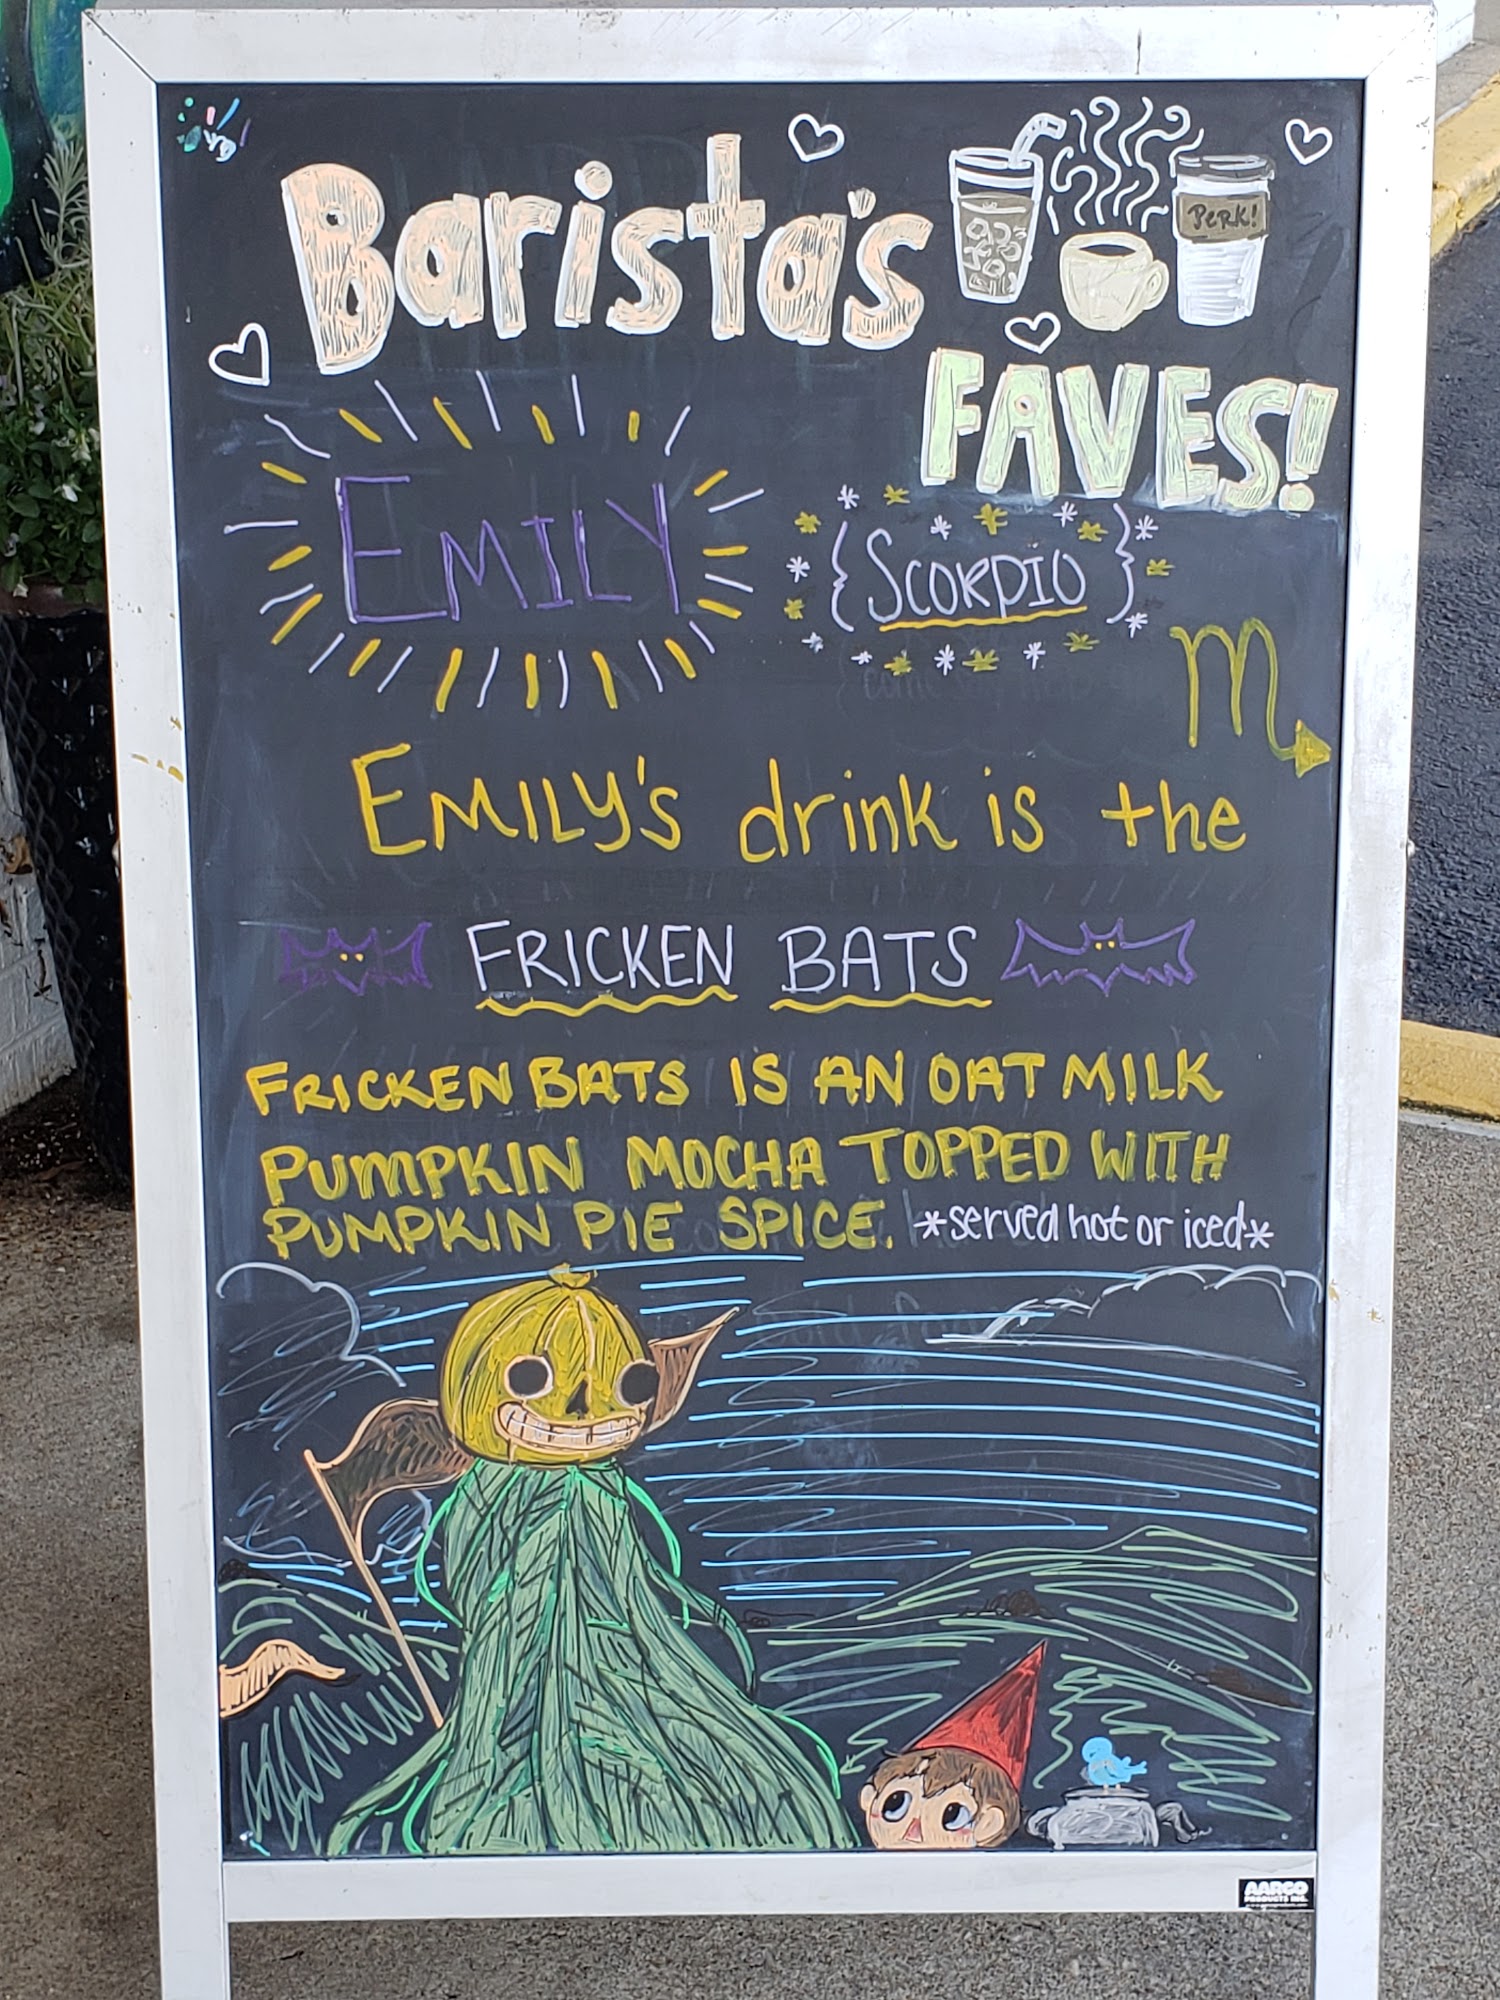 Barista's
PERK!
FAVES!
EMILY
{SCORPIO}
EMILY'S drink is the
FRICKEN BATS
FRICKEN BATS IS AN OAT MILK
PUMPKIN MOCHA TOPPED WITH
PUMPKIN PIE SPICE. *served hot or iced*
AARCO
PRODUCTS INC.